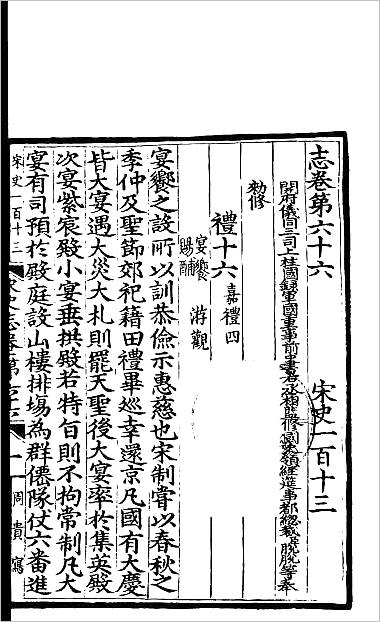 志卷第六十六　宋史一百十三
開府儀同三司上柱國錄軍國重事前中書右丞相監修國史領經筵事都總裁脫脫等奉
勑修
禮十六嘉禮四
宴饗　游觀
賜酺
宴饗之設所以訓恭儉示惠慈也宋制嘗以春秋之
季仲及聖節郊祀藉田禮畢巡幸還京凡國有大慶
皆大宴遇大災大札則罷天聖後大宴率於集英殿
次宴紫宸殿小宴垂拱殿若特旨則不拘常制凡大
宴有司預於殿庭設山樓排場為群僊隊仗六番進
宋史一百十三
周貴寫